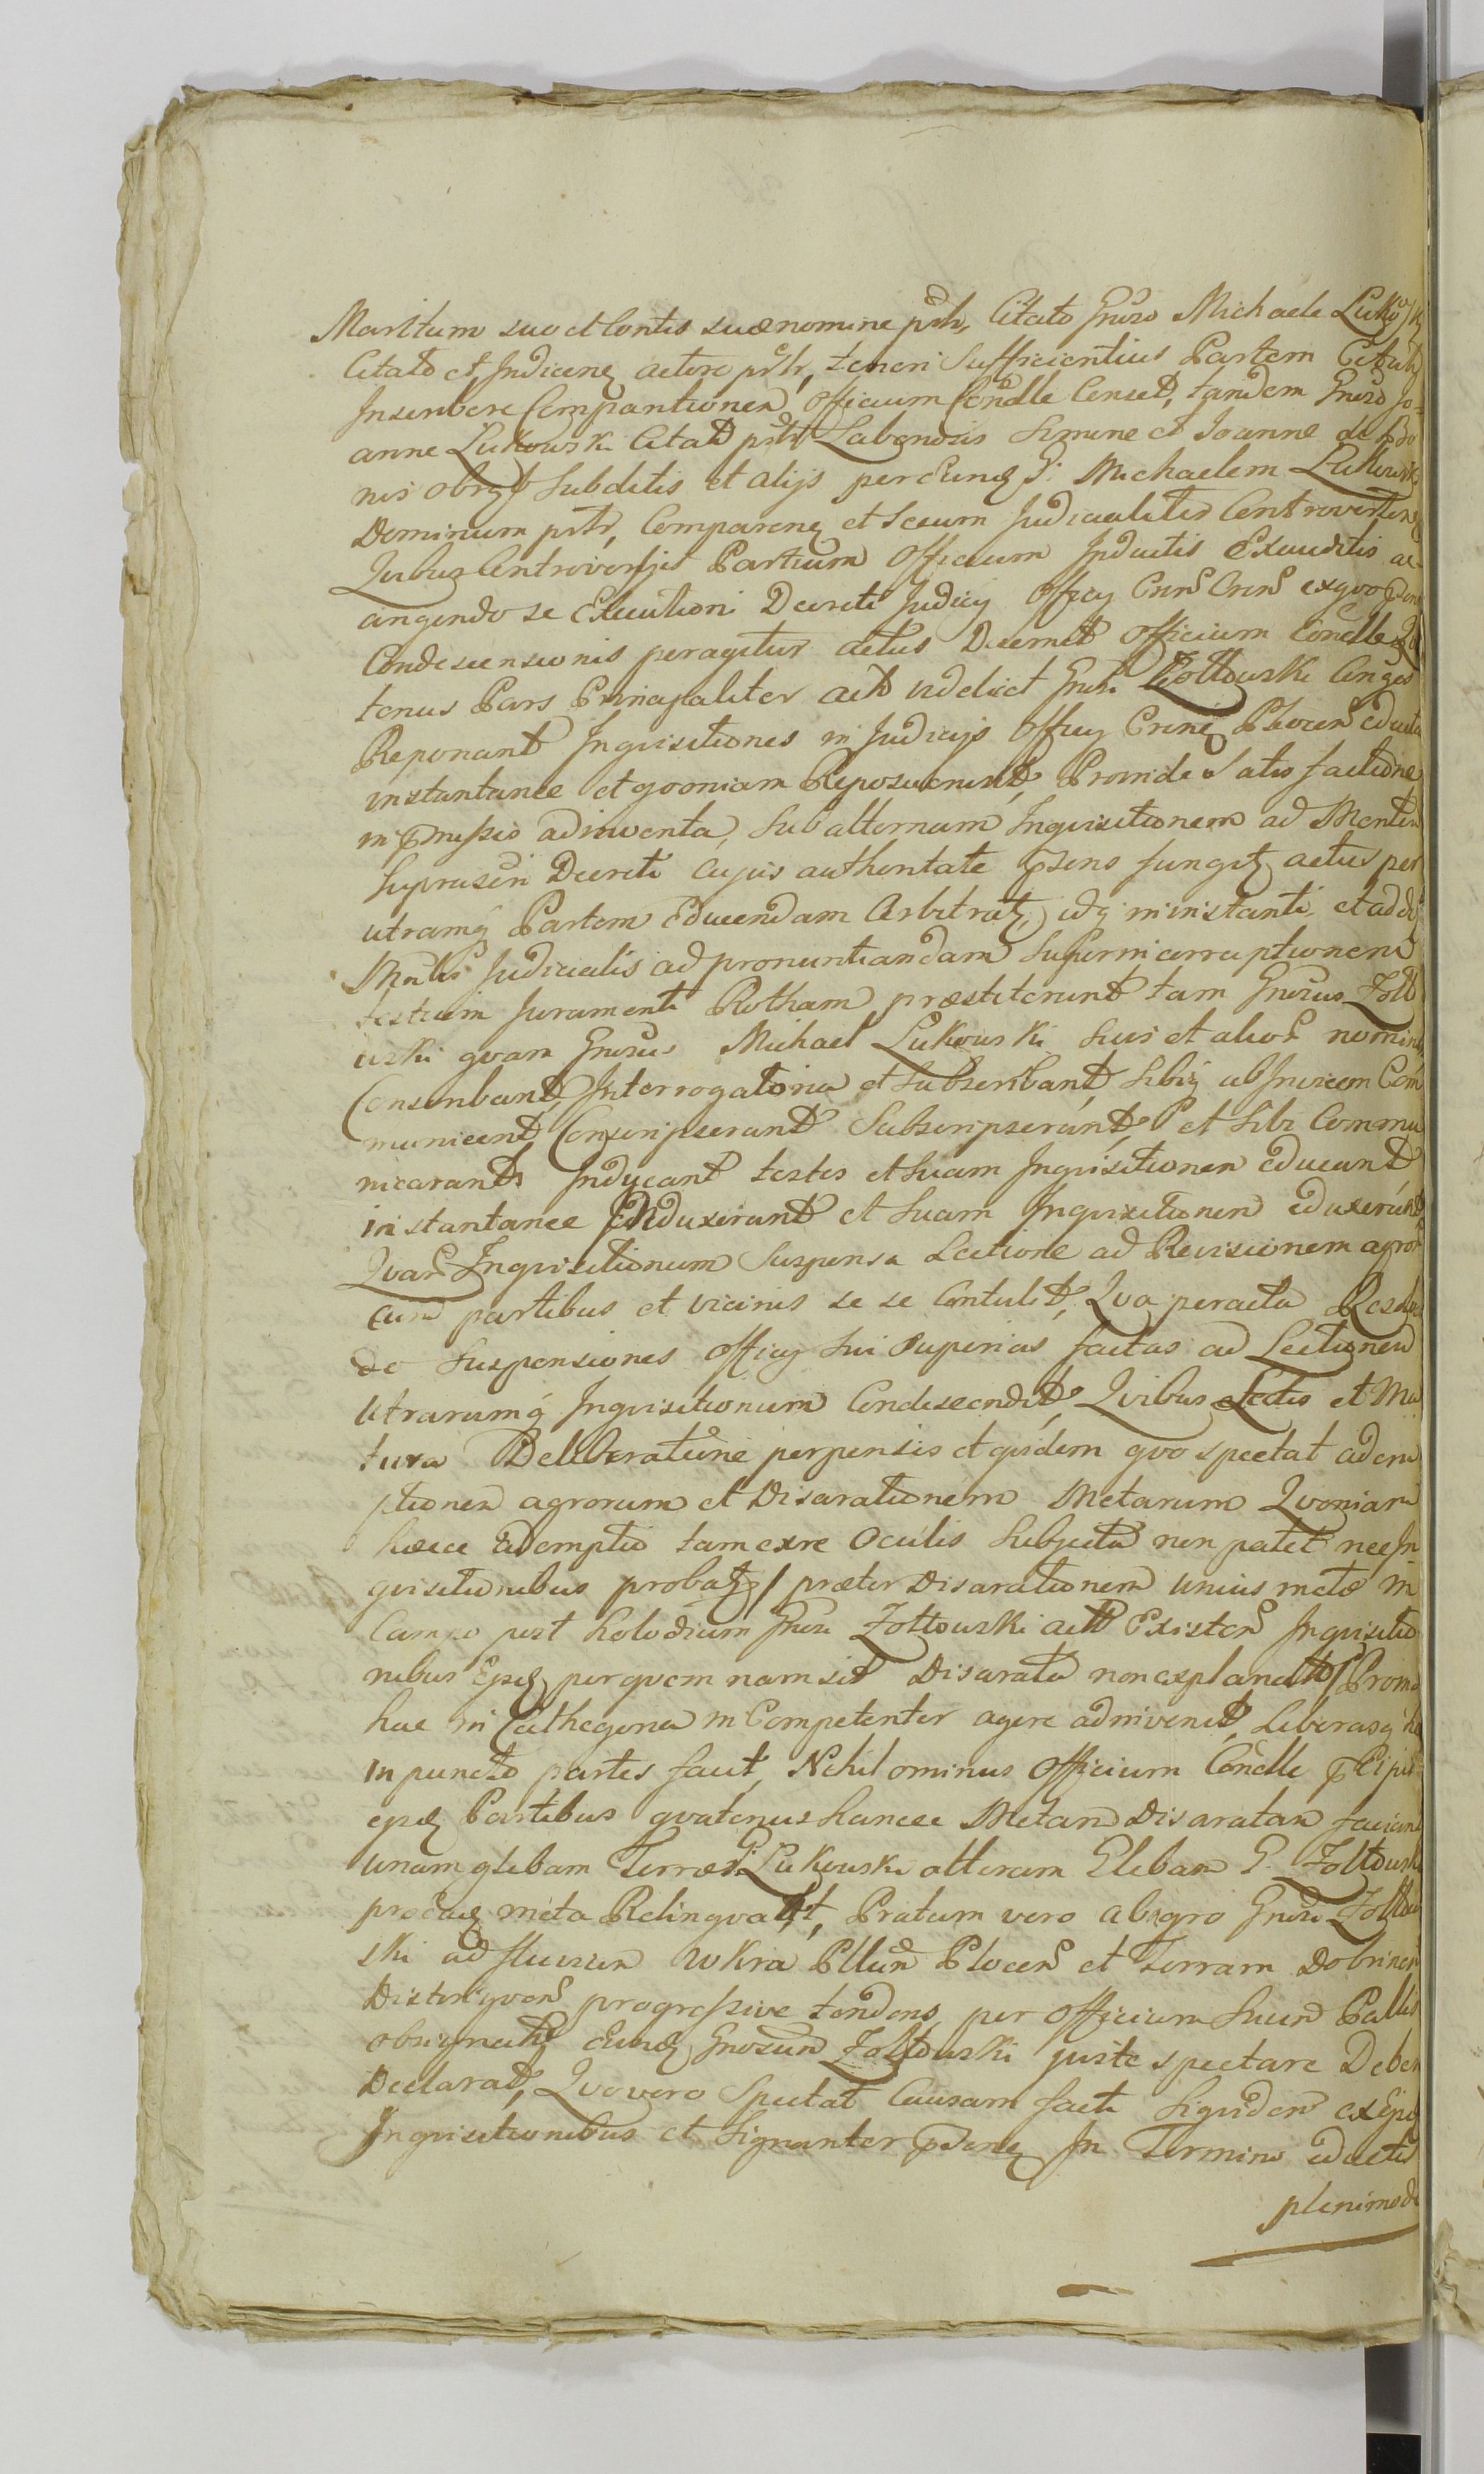 Maritum suo et Contis suæ nomine pstr, Citato Gnoso Michaele Lukows
Citato et Judiceneq actore pstr, teneri Sufficientius Partem Citatq
Inscribere Comparitionem Officium Condlle Censet, tandem Gnoso Jo-
anne Lukowski Citato pstr Laboriosis Simone et Joanne de
nis obrgt Subditis et alijs per eundq G. Michaelem Lukowski
Dominum pstr, Comparenq et Secum Judicialiter Controverten
Quibus Controversijs Partium Officium Inductis Exauditis ac-
cingendo se Executioni Decreti Judicij Officij ex quo psens
Condescensionis peragitur actus Decernit Officium Condlle
tenus Pars Principaliter act videlicet Gnosi Zołtowski Conges
Reponant Inquisitiones in Judicijs Officij Plocen educta
instantanee et qvoniam Reposuerunt, Proinde Satisfactione
in pmissis adinventa, Subalternam Inqvisitionem ad Mentem
Suprascri Decreti cujus authoritate psens fungitq actus per
utramq Partem Educendam Arbitratq, idq in instanti, et ad
Judicialis ad pronuntiandam Super incorruptionem
testium Juramenti Rotham præstiterunt tam Gnosus Zołto
wski qvam Gnosus Michael Lukowski Suis et alior nomin
Conscribant, Interrogatoria et Subscribant, Sibiq ab Invicem Com
municent, Conscripserunt Subscripserunt, et Sibi Commu
nicarunt Inducant testes et Suam Inqvisitionem educant
instantanee Induxerunt et Suam Inqvisitionem eduxerunt
Qvar Inqvisitionum Suspensa Lectione ad Revisionem agror
cum partibus et vicinis se se Contulit, Qva peracta
de Suspensiones Officij Sui Superius factas ad Lectionem
Utrarumq Inqvisitionum Condescendit, Qvibus Lectis et Ma
tura Deliberatione perpensis et qvidem qvo spectat ademp
ptionem agrorum et Disarationem Metarum Qvoniam
hæcce Ademptio tam ex re Oculis Subjecta non patet nec In
qvisitionibus probatq / præter Disarationem unius metæ in
Campo post Kolodium Gnosi Zołtowski act Existen Inqvisitio
nibus Epsq per qvem nam sit Disarata non explanatt / Proin
hac in Cathegoria in Competenter agere adinvenit, Liberasq
in puncto partes facit, Nihilominus Officium Condlle
epsq Partibus qvatenus hancce Metam Disaratam faciant
unam glebam Terræ G. Lukowski alteram Glebam G. Zołtowski
pro eadq meta Relinqvatt, Pratum vero ab agro Gnosi Zołtow
ski ad fluvium Wkra Plltum Plocen et Terram Dobrinen
Distingven progressive tendens per Officium Suum Pallis
obsignatq eundq Gnosum Zołtowski juste spectare Deber
Declarat, Qvo vero Spectat Causam facti Siqvidem ex Epsq
Inqvisitionibus et Signanter psenq In Termino eductis
plenimode